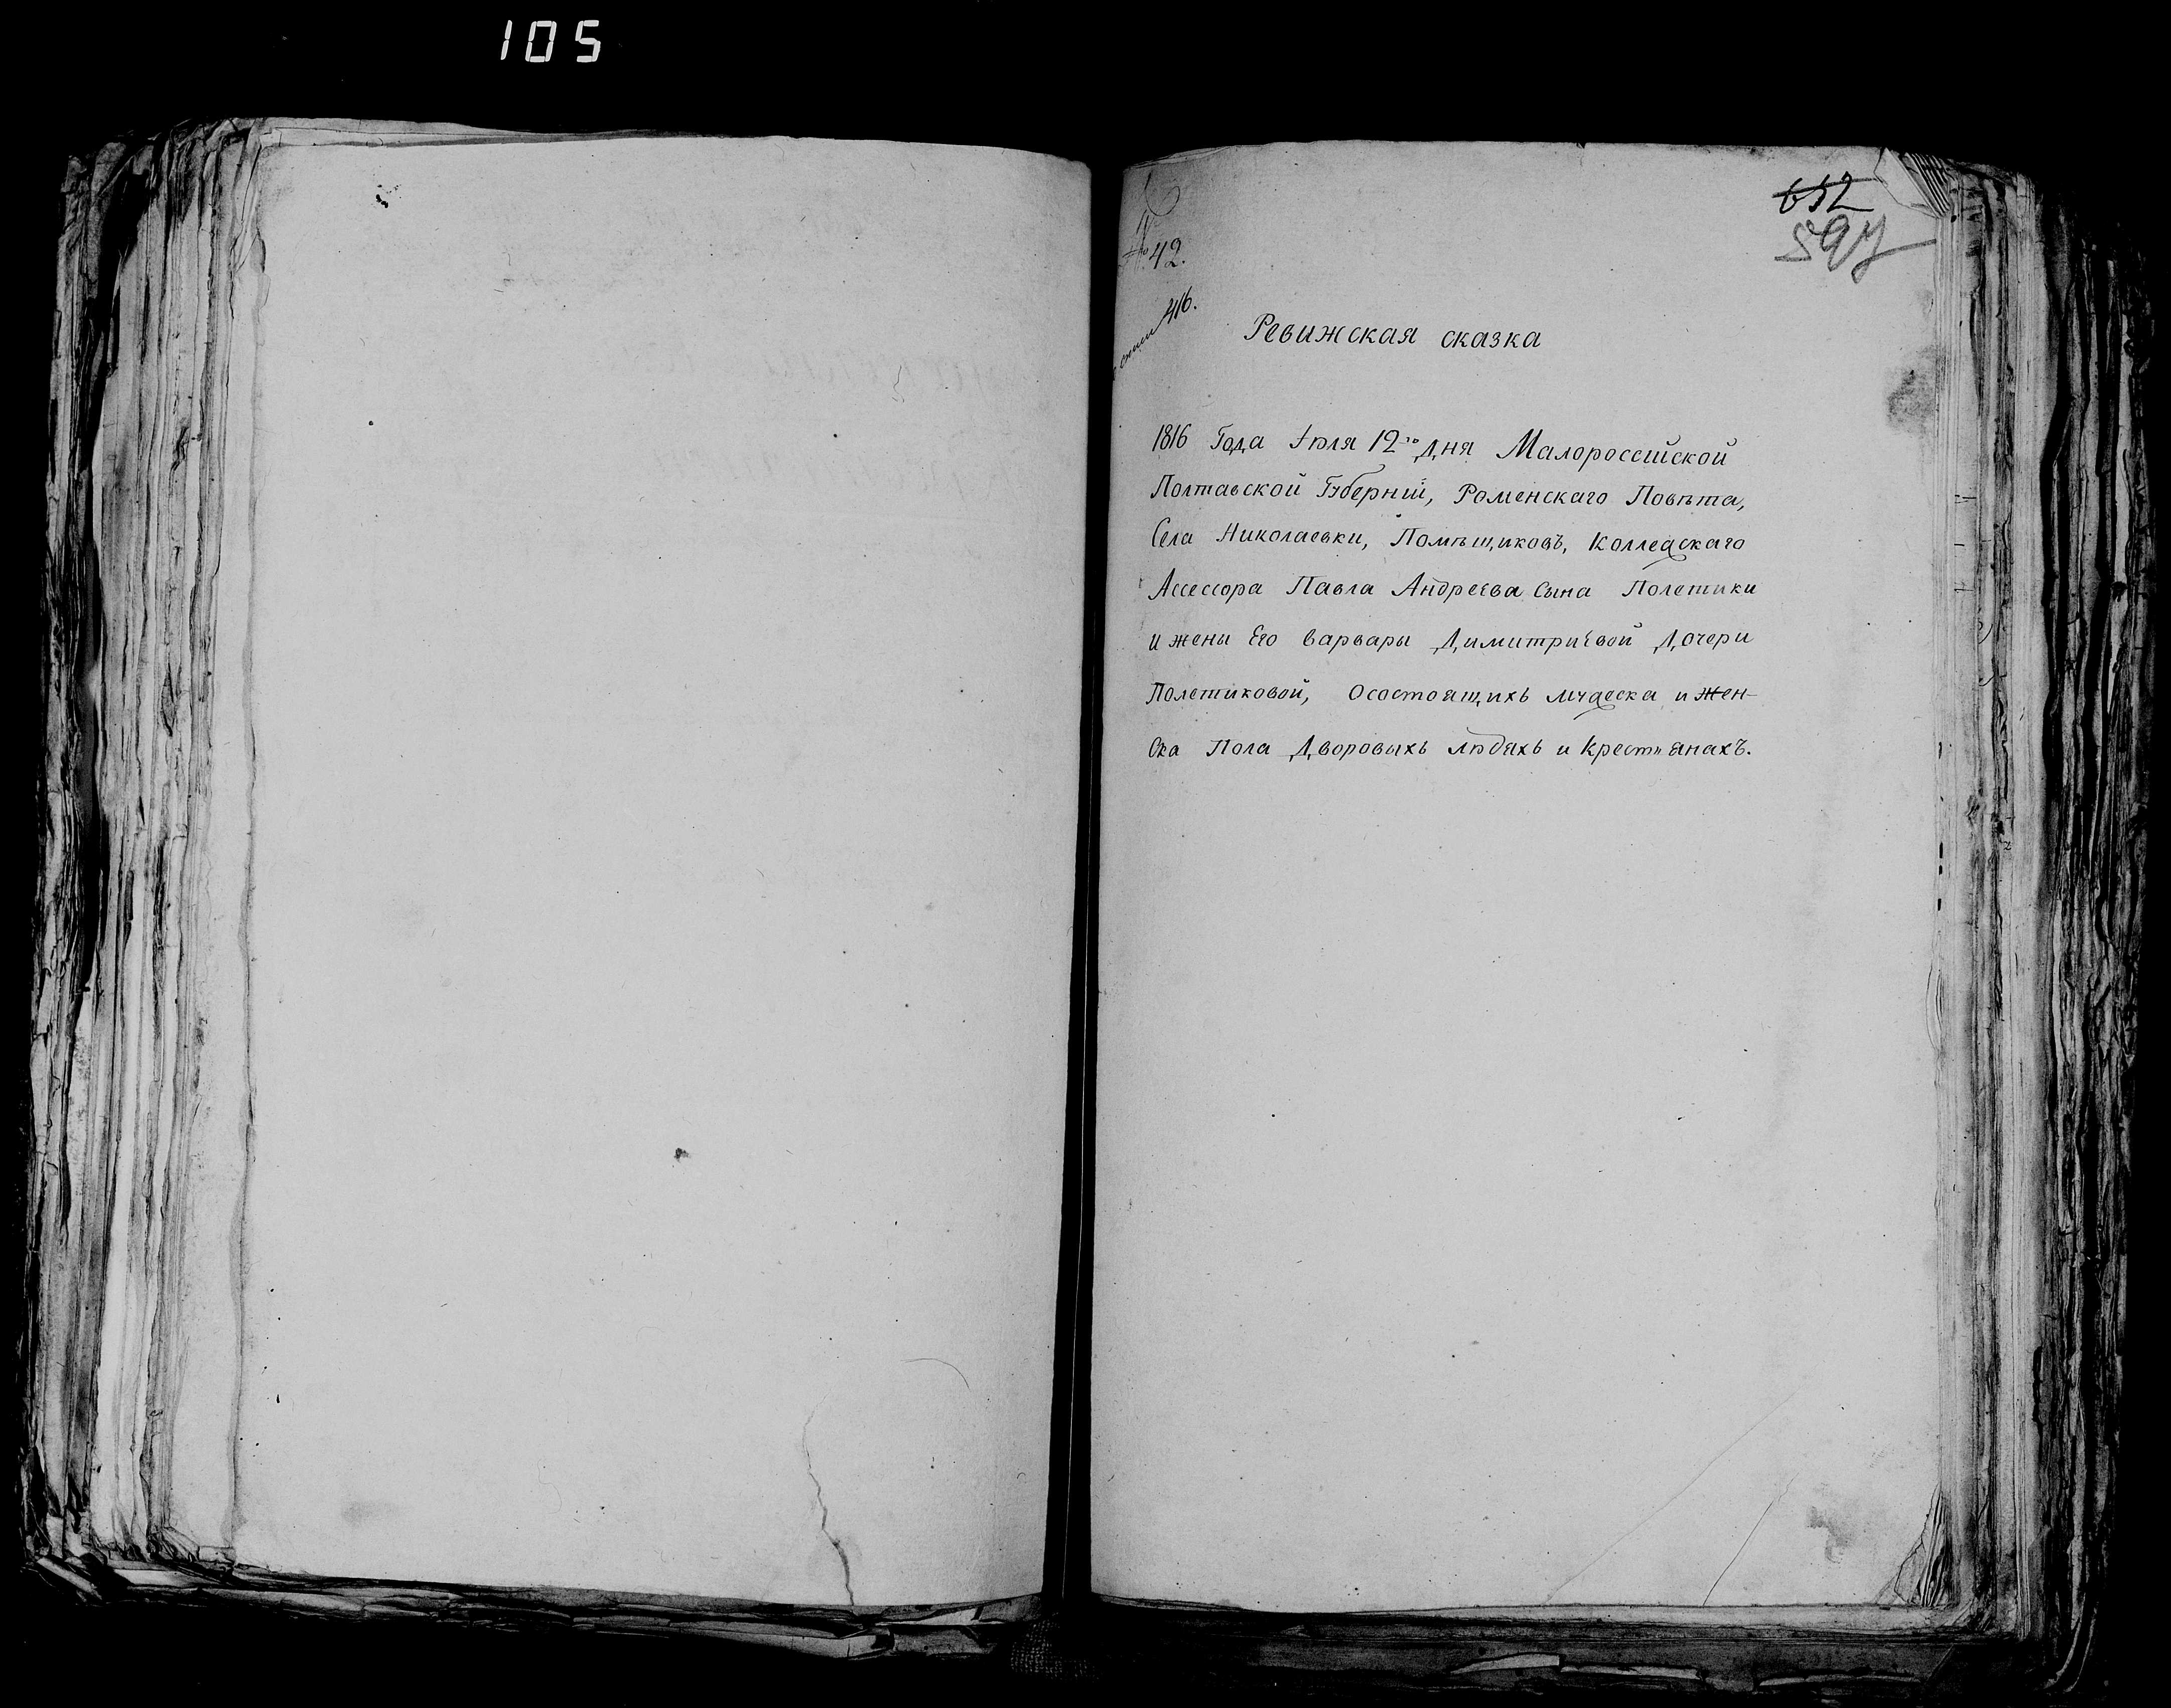 105
652
597
№ 42.
416.
Ревижская сказка
1816 Года Iюля 12го Дня Малороссiйской
Полтавской Губернiи, Роменскаго Повѣта,
Села Николаевки, Помѣщиковъ, Коллеdскаго
Ассессора Павла Андреева Сына Полетики
и жены Его Варвары Димитриевой Дочери
Полетиковой, Осостоящихъ мужеска и жен-
ска Пола Дворовыхъ людяхъ и Крестьянахъ.